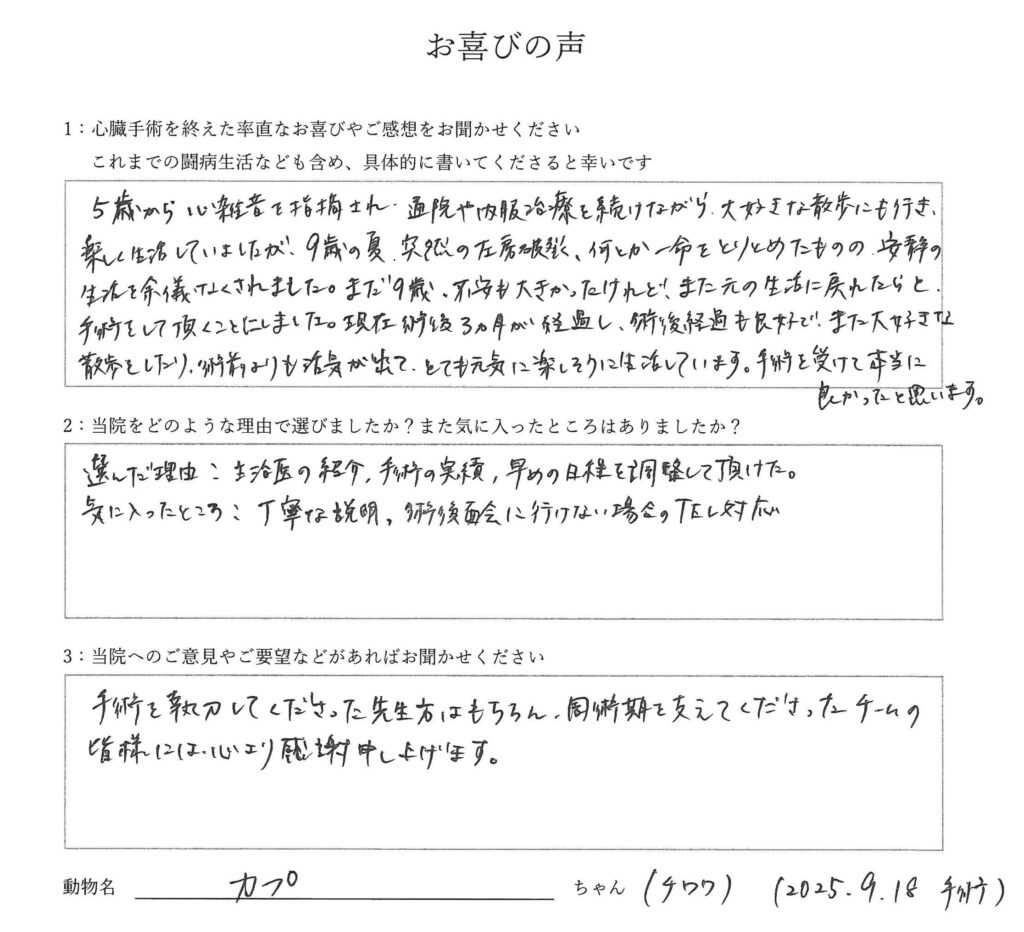 お喜びの声
1：心臓手術を終えた率直なお喜びやご感想をお聞かせください
これまでの闘病生活なども含め、具体的に書いてくださると幸いです
5歳から心雑音を指摘され、通院や内服治療を続けながら、大好きな散歩にも行き、
楽しく生活していましたが、9歳の夏、突然の左房破裂、何とか一命をとりとめたものの、安静の
生活を余儀なくされました。まだ9歳、不安も大きかったけれど、また元の生活に戻れたらと、
手術をして頂くことにしました。現在術後3ヵ月が経過し、術後経過も良好で、また大好きな
散歩をしたり、術前よりも活気が出て、とても元気に楽しそうに生活しています。手術を受けて本当に
良かったと思います。
2：当院をどのような理由で選びましたか？また気に入ったところはありましたか？
選んだ理由：主治医の紹介，手術の実績，早めの日程を調整して頂けた。
気に入ったところ：丁寧な説明、術後面会に行けない場合のTEL対応
3：当院へのご意見やご要望などがあればお聞かせください
手術を執刀してくださった先生方はもちろん、周術期を支えてくださったチームの
皆様には、心より感謝申し上げます。
動物名 カプ ちゃん（チワワ）（2025.9.18 手術）